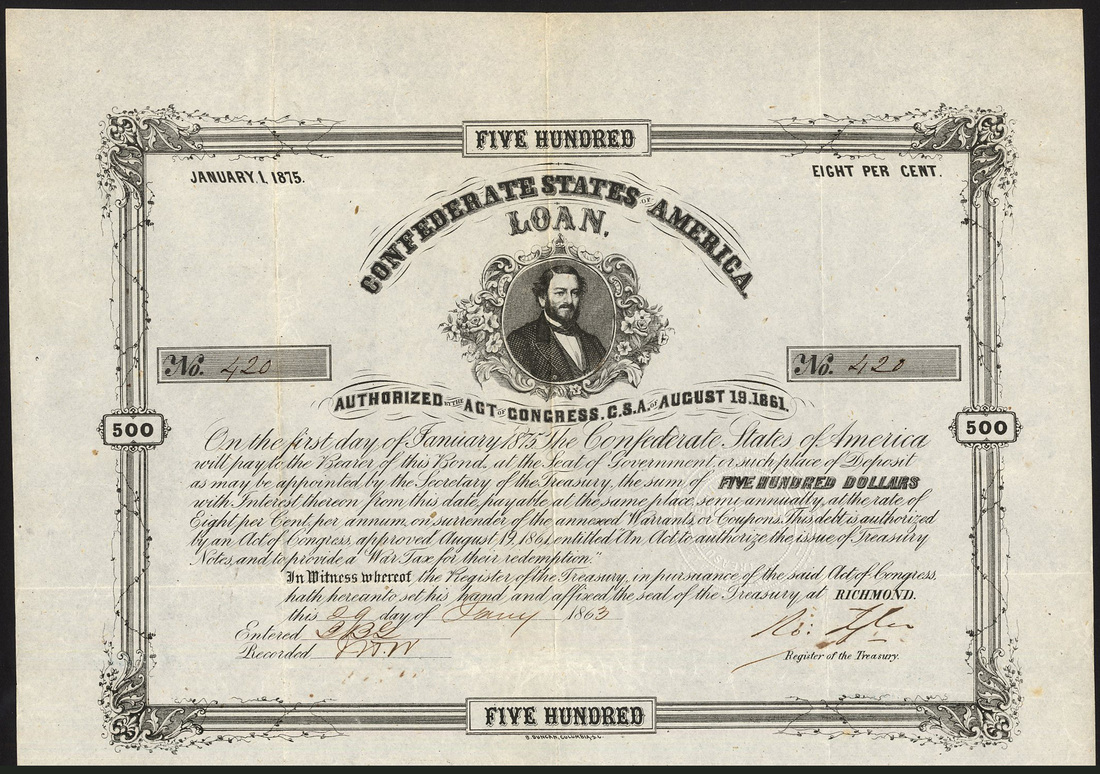 FIVE HUNDRED
JANUARY.1, 1875.
EIGHT PER CENT.
CONFEDERATE STATES OF AMERICA.
LOAN,
No. 420
No. 420
AUTHORIZED BY THE ACT OF CONGRESS. C.S.A. OF AUGUST 19.1861.
500
500
On the first day of January 1875 the Confederate States of America
will pay to the Bearer of this Bond, at the Seat of Government, or such place of Deposit
as may be appointed by the Secretary of the Treasury, the sum of FIVE HUNDRED DOLLARS
with Interest thereon from this date, payable at the same place, semi-annually, at the rate of
Eight per Cent, per annum, on surrender of the annexed Warrants, or Coupons. This debt is authorized
by an Act of Congress, approved August 19. 1861, entitled "An Act to authorize the issue of Treasury
Notes, and to provide a War Tax for their redemption."
In Witness whereof the Register of the Treasury, in pursuance of the said Act of Congress,
hath hereunto set his hand and affixed the seal of the Treasury at RICHMOND.
this 29 day of Jany 1863
Entered
Recorded
Ro: Tyler
Register of the Treasury.
FIVE HUNDRED
B. DUNCAN, COLUMBIA, S.C.